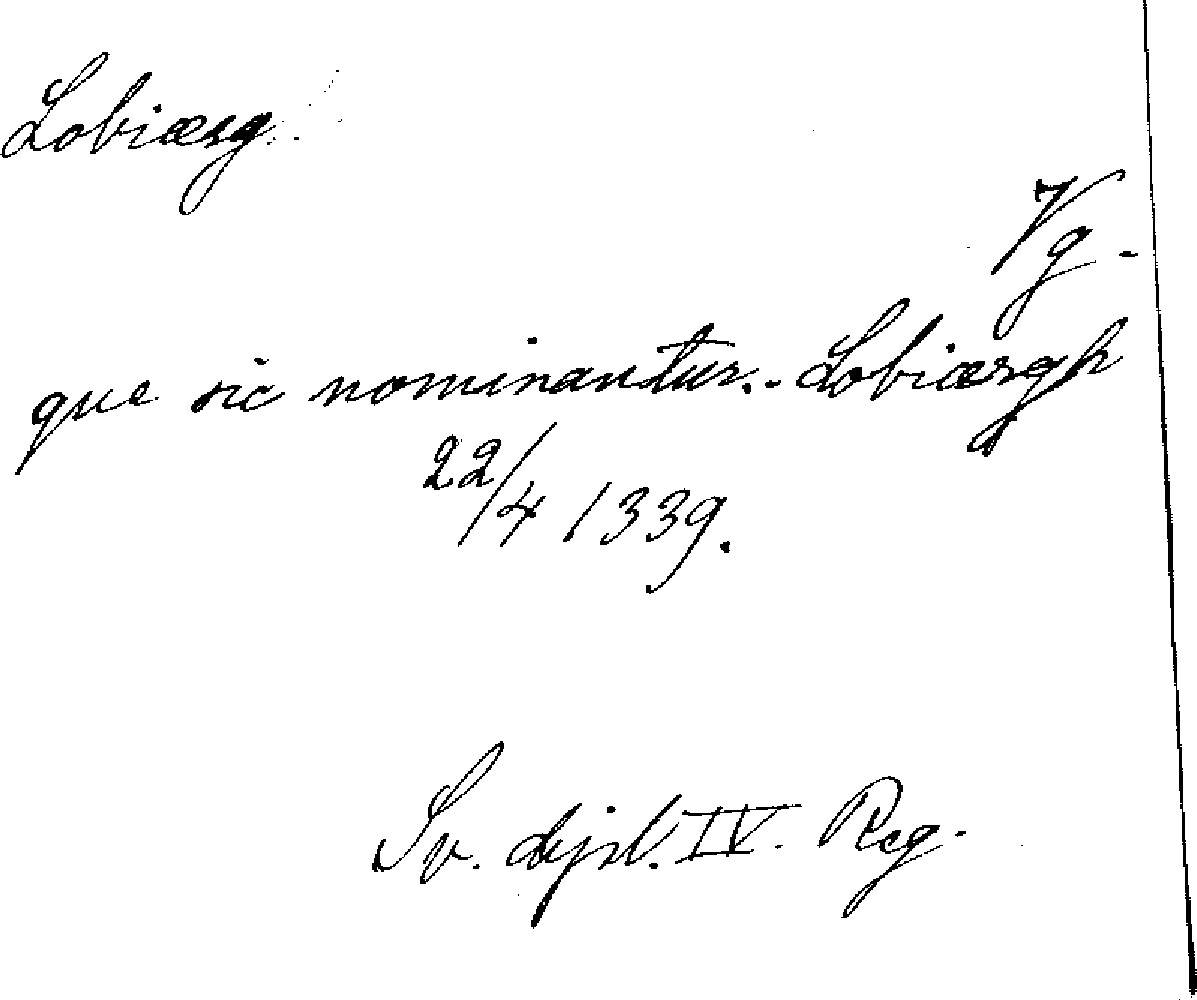 Lobiærg
Vg.
que sic nominantur.. Lobiærgh
22/4 1339.
Sv. dipl. IV. Reg.